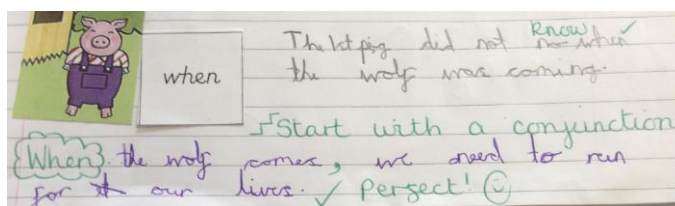 know ✓
The 1st pig did not no when
when
the wolf was coming.
Start with a conjunction
When the wolf comes, we need to run
for our lives. ✓ Perfect! ☺